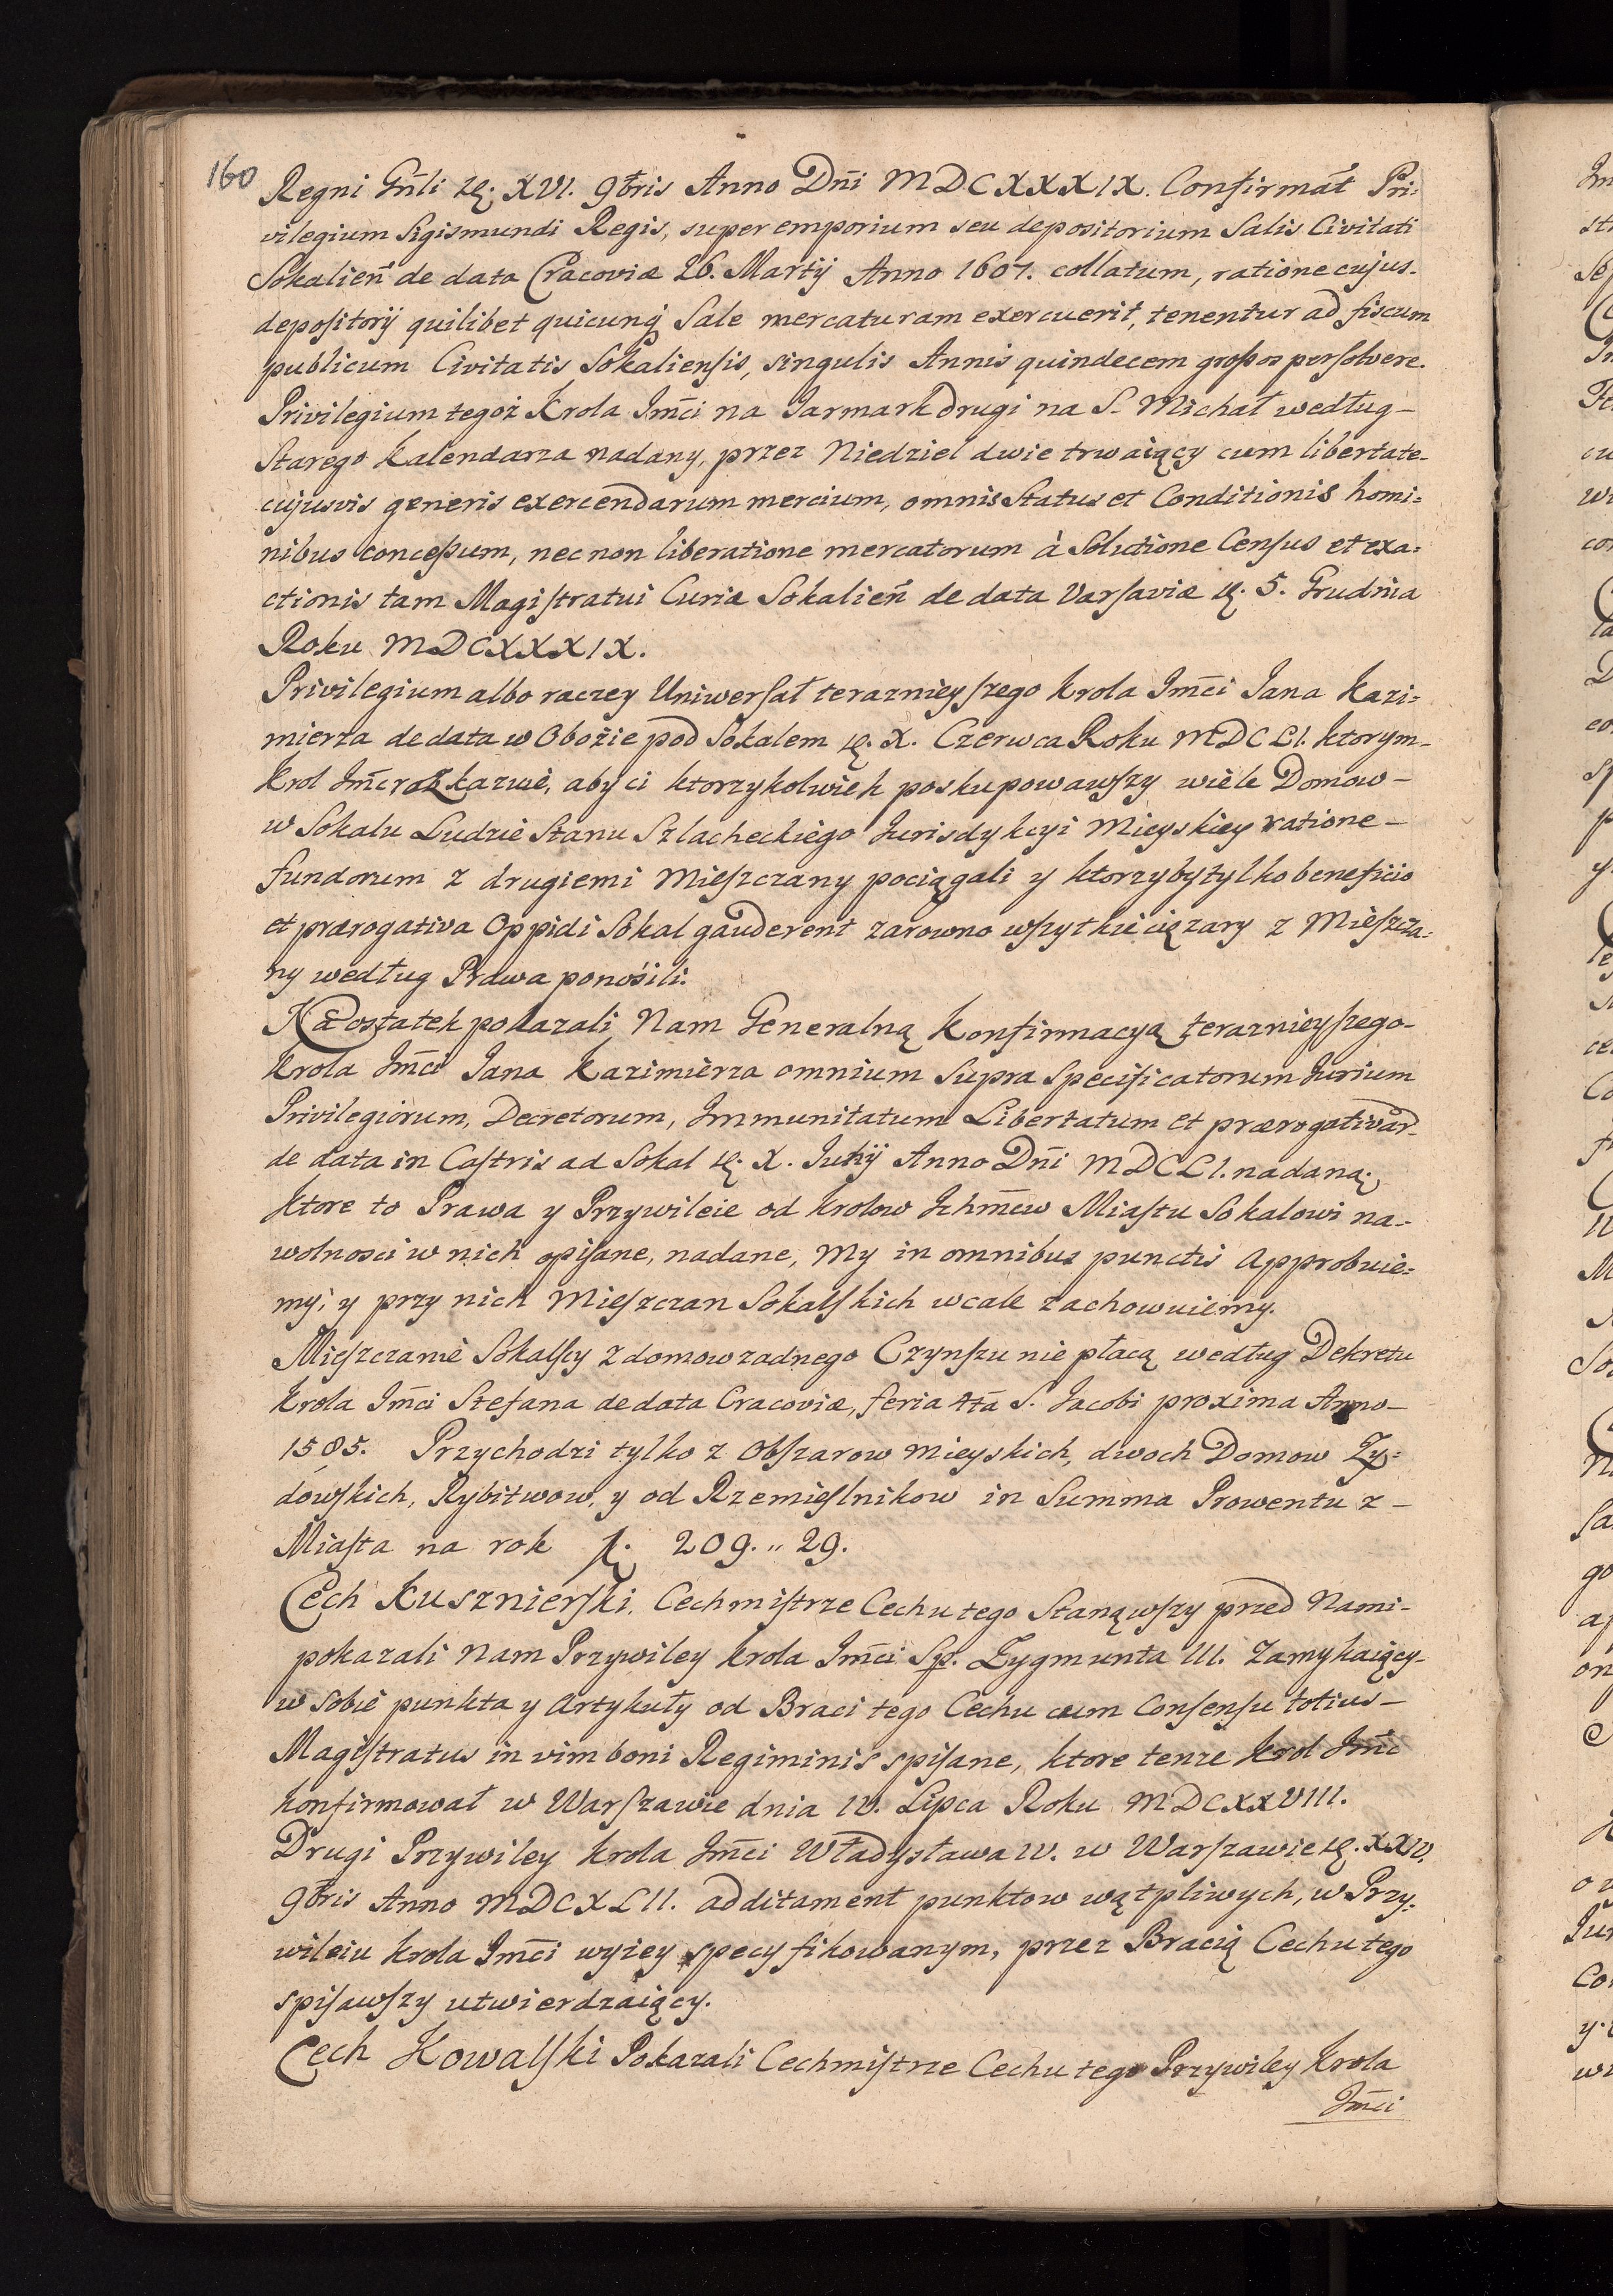 160
Regni Gn̄li d. XVI. 9bris Anno Dn̄i MDCXXXIX. Confirmat̄ Pri:
vilegium Sigismundi Regis, super emporium seu depositorium Salis Civitati
Sokalien̄ de data Cracoviæ 26. Martij Anno 1607. collatum, ratione cujus-
depoſitorij quilibet quicunq̨ Sale mercaturam exercuerit, tenentur ad fiscum
publicum Civitatis Sokalienſis, singulis Annis quindecem groſsos perſolvere.
Privilegium tegoż Krola Jm̄ci na Jarmark drugi na S. Michał według-
Starego Kalendarza nadany, przez Niedziel dwie trwaiący cum libertate-
cujusvis generis exercendarum mercium, omnis Status et Conditionis homi:
nibus conceſsum, nec non liberatione mercatorum à Solutione Cenſus et exa:
ctionis tam Magiſtratui Curiæ Sokalien̄ de data Varſaviæ d. 5. Grudnia
Roku MDCXXXIX.
Privilegium albo raczey Uniwerſał teraznieyſzego Krola Jm̄ci Jana Kazi:
mierza de data w Obozie pod Sokalem d. X. Czerwca Roku MDCLI. ktorym-
Krol Jm̄c rozkazuie, aby ci ktorzykolwiek poskupowawſzy wiele Domow-
w Sokalu Ludzie Stanu Szlacheckiego Jurisdykcyi Mieyskiey ratione-
fundorum z drugiemi Mieſzczany pociągali y ktorzyby tylko beneficio
et prærogativa Oppidi Sokal gauderent zarowno wſzytkie ciązary z Mieſzcza:
ny według Prawa ponosili.
Na oſtatek pokazali Nam Generalną Konfirmacyą teraznieyſzego-
Krola Jm̄ci Jana Kazimierza omnium Supra Specificatorum Jurium
Privilegiorum, Decretorum, Immunitatum Libertatum et prærogativar̄-
de data in Caſtris ad Sokal d. X. Julij Anno Dn̄i MDCLI. nadaną;
ktore to Prawa y Przywileie od Krolow Jchm̄cw Miaſtu Sokalowi na-
wolnosci w nich opiſane, nadane, My in omnibus punctis Approbuie:
my, y przy nich Mieſzczan Sokalſkich wcale zachowuiemy.
Mieſzczanie Sokalſcy z domow zadnego Czynſzu nie płacą według Dekretu
Krola Jm̄ci Stefana de data Cracoviæ, feria 4ta S. Jacobi proxima Anno-
1585. Przychodzi tylko z Obſzarow mieyskich, dwoch Domow Zy:
dowſkich, Rybitwow, y od Rzemieſlnikow in Summa Prowentu z-
Miaſta na rok f. 209.,, 29.
Cech Kusznierſki. Cechmiſtrze Cechu tego Stanąwſzy przed Nami-
pokazali Nam Przywiley Krola Jm̄ci Sp. Zygmunta III. Zamykaiący-
w Sobie punkta y Artykuły od Braci tego Cechu cum Conſenſu totius-
Magiſtratus in vim boni Regiminis spiſane, ktore tenze Krol Jm̄c
konfirmował w Warſzawie dnia IV. Lipca Roku MDCXXVIII.
Drugi Przywiley Krola Jm̄ci Władysława IV. w Warſzawie d. XXIV.
9bris Anno MDCXLII. additament punktow wątpliwych, w Przy:
wileiu Krola Jm̄ci wyżey specyfikowanym, przez Bracią Cechu tego
spiſawſzy utwierdzaiący.
Cech Kowalſki Pokazali Cechmiſtrze Cechu tego Przywiley Krola
Jm̄ci